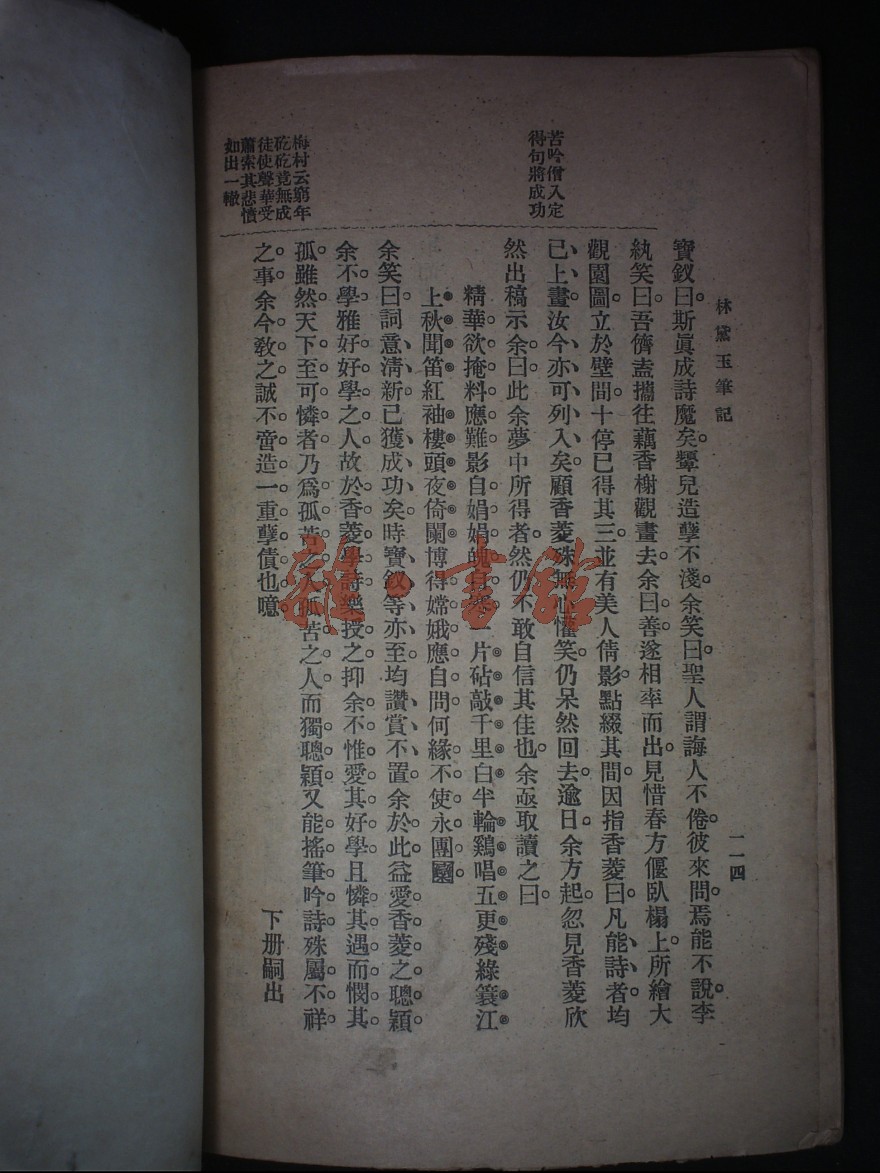 林黛玉筆記
一一四
苦吟僧入定
得句將成功
梅村云窮年
矻矻竟無成
徒使聲華受
蕭索其悲憤
如出一轍
寶釵曰斯眞成詩魔矣顰兒造孽不淺余笑曰聖人謂誨人不倦彼來問焉能不說李
紈笑曰吾儕盍攜往藕香榭觀畫去余曰善遂相率而出見惜春方偃臥榻上所繪大
觀園圖立於壁間十停已得其三並有美人倩影點綴其間因指香菱曰凡能詩者均
已上畫汝今亦可列入矣顧香菱殊無心懽笑仍呆然回去逾日余方起忽見香菱欣
然出稿示余曰此余夢中所得者然仍不敢自信其佳也余亟取讀之曰
精華欲掩料應難影自娟娟魄自寒一片砧敲千里白半輪鷄唱五更殘綠簑江
上秋聞笛紅袖樓頭夜倚闌博得嫦娥應自問何緣不使永團圞
余笑曰詞意淸新已獲成功矣時寶釵等亦至均讚賞不置余於此益愛香菱之聰穎
余不學雅好好學之人故於香菱學詩樂授之抑余不惟愛其好學且憐其遇而憫其
孤雖然天下至可憐者乃爲孤苦之人孤苦之人而獨聰穎又能搖筆吟詩殊屬不祥
之事余今敎之誠不啻造一重孽債也噫
下册嗣出
雜·書館